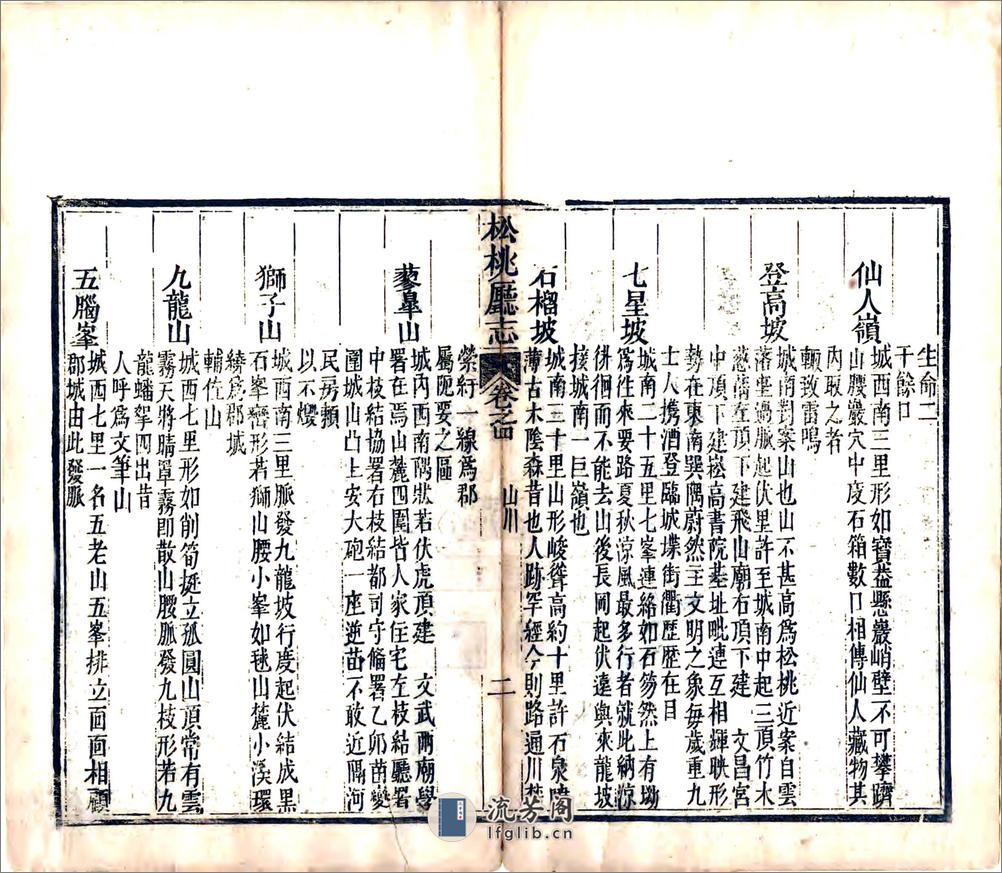 生命二
千餘口
仙人嶺
城西南三里形如寶葢懸巖峭壁不可攀躋
山腰巖穴中庋石箱數口相傳仙人藏物其
內取之者
輙致雷鳴
登高坡
城南對案山也山不甚高爲松桃近案自雲
落堂過脈起伏里許至城南中起三頂竹木
葱蘢左頂下建飛山廟右頂下建 文昌宮
中頂下建崧高書院基址毗連互相輝映形
勢在東南巽隅蔚然主文明之象每歲重九
士人携酒登臨城堞街衢歷歷在目
七星坡
城南二十五里七峯連絡如石笏然上有坳
爲往來要路夏秋涼風最多行者就此納涼
徘徊而不能去山後長岡起伏遠與來龍坡
接城南一巨嶺也
石榴坡
城南三十里山形峻聳高約十里許石泉
薄古木陰森昔也人跡罕經今則路通川
松桃廳志
卷之四
山川
二
縈紆一線爲郡
屬阨要之區
蓼臯山
城內西南隅狀若伏虎頂建 文武兩廟學
署在焉山麓四圍皆人家住宅左枝結廳署
中枝結協署右枝結都司守偹署乙卯苗變
圍城山凸上安大砲一座逆苗不敢近隔河
民房頼
以不燬
獅子山
城西南三里脈發九龍坡行度起伏結成黑
石峯巒形若獅山腰小峯如毬山麓小溪環
繞爲郡城
輔佐山
九龍山
城西七里形如削筍挺立孤圓山頂常有雲
霧天將晴罩霧即散山腰脈發九枝形若九
龍蟠拏四出昔
人呼爲文筆山
五腦峯
城西七里一名五老山五峯排立面面相顧
郡城由此發脈
流芳阁
lfglib.cn